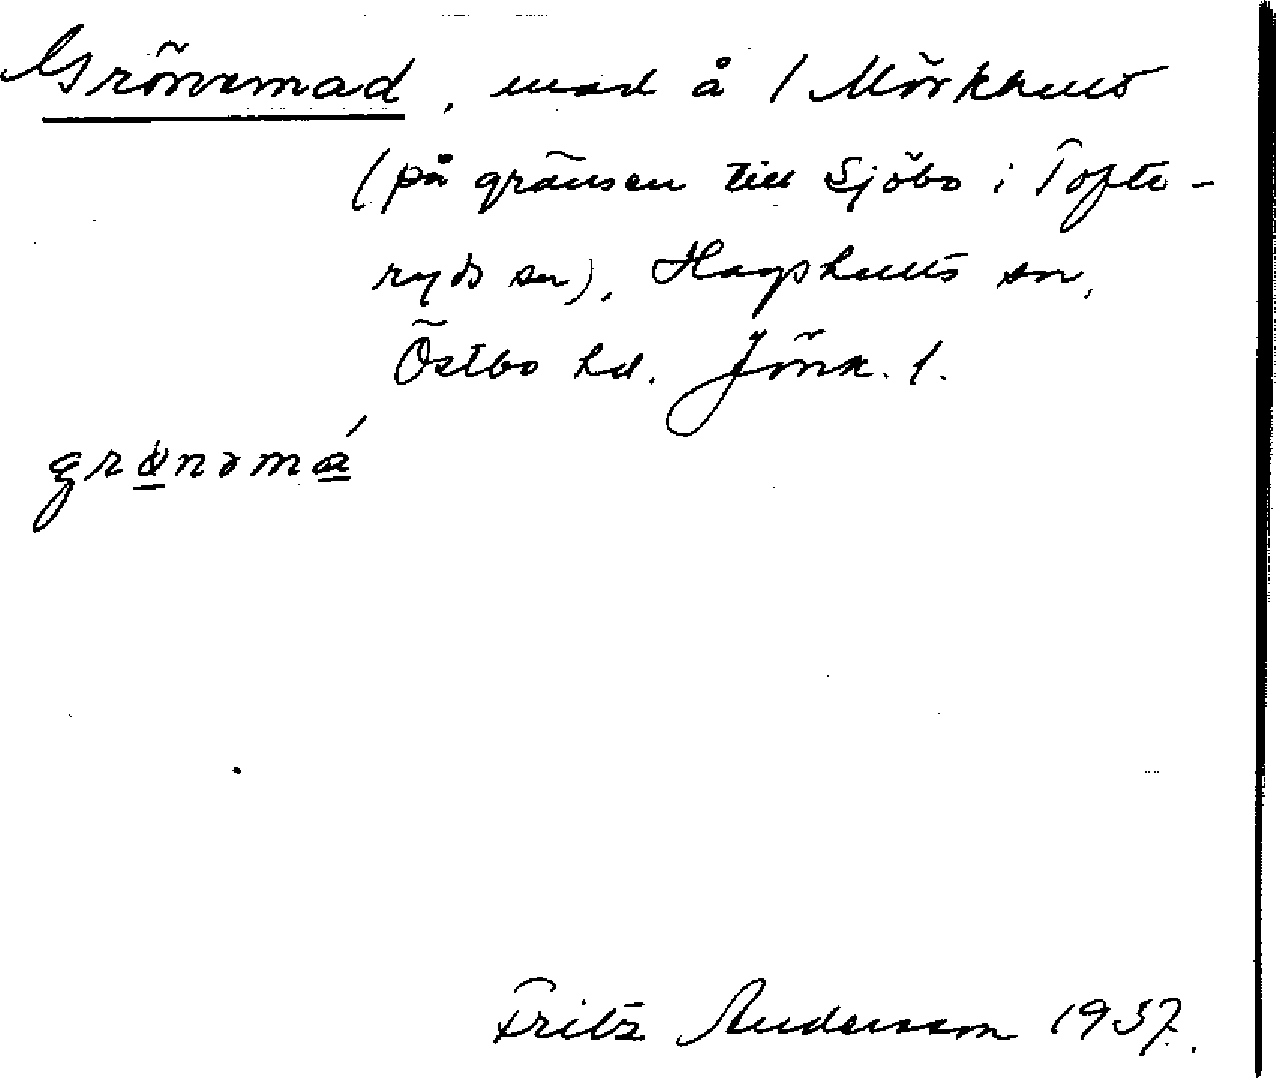 Grönemad, mad å / Mörkhult
(på gränsen till Sjöbo i Tofta-
ryds sn), Hagshults sn,
Östbo hd. Jönk. l.
grønəmá
Fritz Andersson 1937.